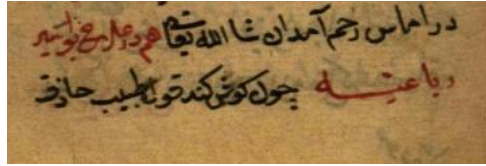 در اماس رحم آمدان شا الله تعالی هم در علاج بواسیر
رباعیه چون کوش کند قول طبیب حاذق